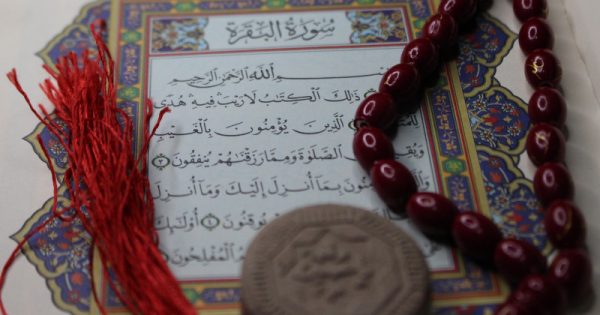 سُورَةُ البَقَرَةِ
بِسْمِ ٱللَّهِ ٱلرَّحْمَٰنِ ٱلرَّحِيمِ
ذَٰلِكَ ٱلْكِتَٰبُ لَا رَيْبَ فِيهِ هُدًى
ٱلَّذِينَ يُؤْمِنُونَ بِٱلْغَيْبِ
ٱلصَّلَوٰةَ وَمِمَّا رَزَقْنَٰهُمْ يُنفِقُونَ ٣
بِمَآ أُنزِلَ إِلَيْكَ وَمَآ أُنزِلَ
يُوقِنُونَ ٤ أُو۟لَٰٓئِكَ
ٱلْمُفْلِحُونَ